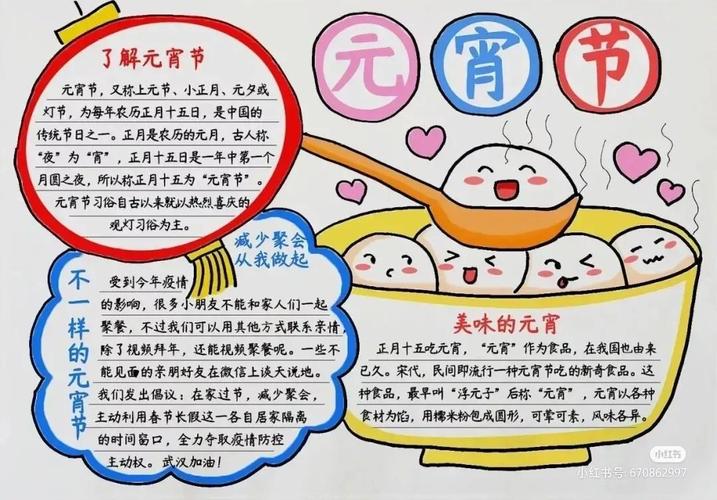 元宵节
了解元宵节
元宵节，又称上元节、小正月、元夕或
灯节，为每年农历正月十五日，是中国的
传统节日之一。正月是农历的元月，古人称
“夜”为“宵”，正月十五日是一年中第一个
月圆之夜，所以称正月十五为“元宵节”。
元宵节习俗自古以来就以热烈喜庆的
观灯习俗为主。
减少聚会
从我做起
不一样的元宵节
受到今年疫情
的影响，很多小朋友不能和家人们一起
聚餐，不过我们可以用其他方式联系亲情，
除了视频拜年，还能视频聚餐呢。一些不
能见面的亲朋好友在微信上谈天说地。
我们发出倡议：在家过节，减少聚会，
主动利用春节长假这一各自居家隔离
的时间窗口，全力夺取疫情防控
主动权。武汉加油！
美味的元宵
正月十五吃元宵，“元宵”作为食品，在我国也由来
已久。宋代，民间即流行一种元宵节吃的新奇食品。这
种食品，最早叫“浮元子”后称“元宵”，元宵以各种
食材为馅，用糯米粉包成圆形，可荤可素，风味各异。
小红书
小红书号：670862997